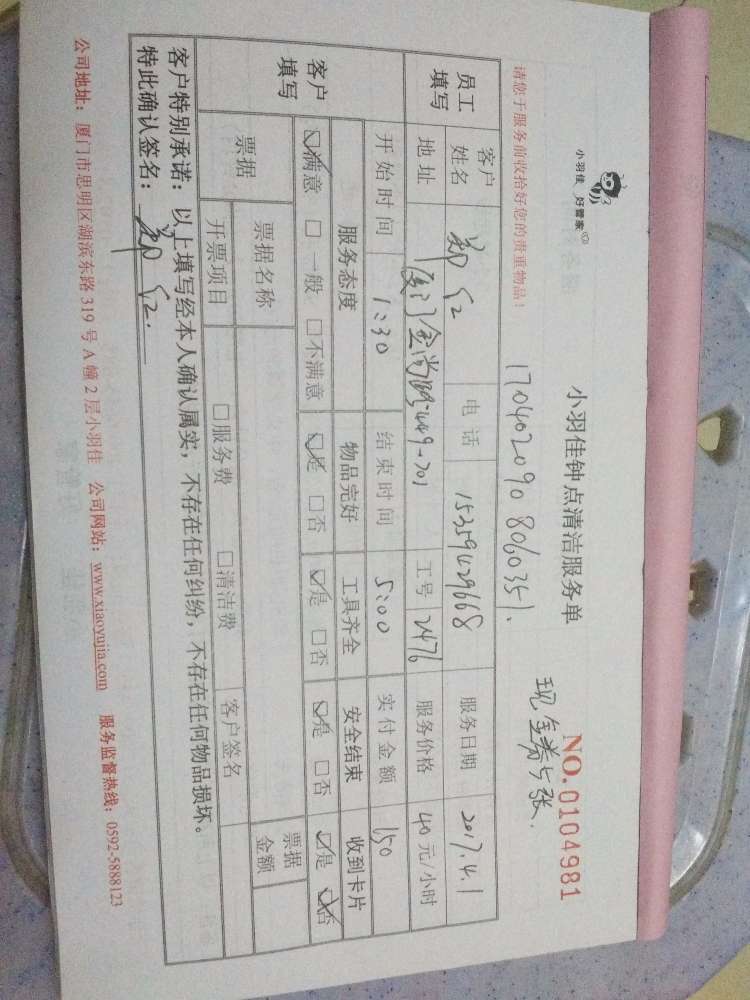 小羽佳 好管家
小羽佳钟点清洁服务单
NO.0104981
请您于服务前收拾好您的贵重物品！
1704020908060351.
现金券5张.
员工填写
客户姓名 郑红 电话 15359429668 服务日期 2017.4.1
地址 厦门金尚路449-701 工号 2476 服务价格 40元/小时
开始时间 1:30 结束时间 5:00 实付金额 150
客户填写
服务态度 物品完好 工具齐全 安全结束 收到卡片
☑满意 □一般 □不满意 ☑是 □否 ☑是 □否 ☑是 □否 ☑是 ☑否
票据 票据名称 票据金额
开票项目 □服务费 □清洁费 客户签名
客户特别承诺：以上填写经本人确认属实，不存在任何纠纷，不存在任何物品损坏。
特此确认签名：郑红.
公司地址：厦门市思明区湖滨东路319号A幢2层小羽佳 公司网站：www.xiaoyujia.com 服务监督热线：0592-5888123